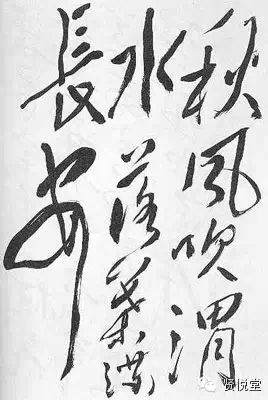 秋風吹渭
水落葉滿
長安
贤悦堂